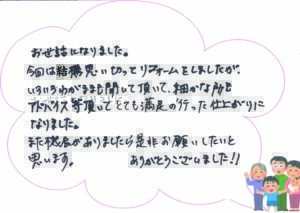 お世話になりました。
今回は結構思い切ってリフォームをしましたが、
いろいろわがままも聞いて頂いて、細かな所も
アドバイス等頂いてとても満足の行った仕上がりに
なりました。
また機会がありましたら是非お願いしたいと
思います。 ありがとうございました!!